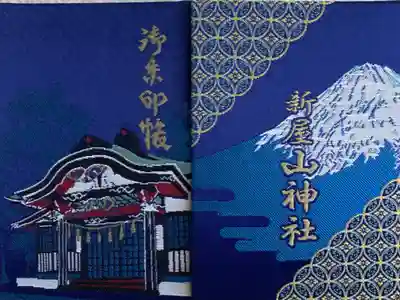 御朱印帳
新屋山神社